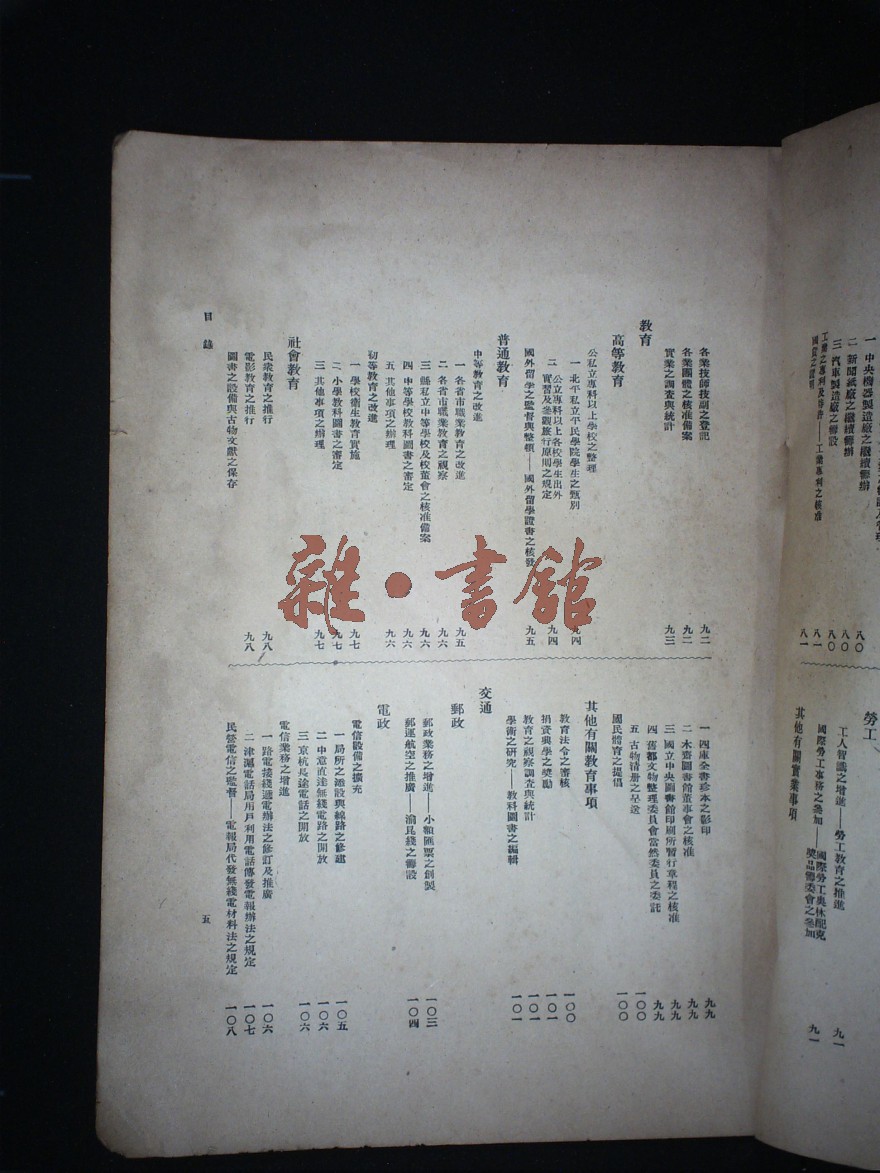 一 中央機器製造廠之繼續籌辦
二 新聞紙廠之繼續籌辦 八〇
三 汽車製造廠之籌設 八〇
工業之專利及特許——工業專利之核准 八一
勞工
工人智識之增進——勞工教育之推進 九一
國際勞工事務之參加——國際勞工奧林配克獎品籌委會之參加 九一
其他有關實業事項
各業技師技副之登記 九二
各業團體之核准備案 九二
實業之調查與統計 九三
教育
高等教育
公私立專科以上學校之整理
一 北平私立平民學院學生之甄別 九四
二 公立專科以上各校學生出外
實習及參觀旅行原則之規定 九四
國外留學之監督與整頓——國外留學證書之核發 九五
普通教育
中等教育之改進
一 各省市職業教育之改進 九五
二 各省市職業教育之視察 九六
三 縣私立中等學校及校董會之核准備案 九六
四 中等學校教科圖書之審定 九六
五 其他事項之辦理 九六
初等教育之改進
一 學校衛生教育實施 九七
二 小學教科圖書之審定 九七
三 其他事項之辦理 九七
社會教育
民衆教育之推行 九八
電影教育之推行 九八
圖書之設備與古物文獻之保存
一 四庫全書珍本之影印 九九
二 木齋圖書館董事會之核准 九九
三 國立中央圖書館印刷所暫行章程之核准 九九
四 舊都文物整理委員會當然委員之委託 九九
五 古物清册之呈送 一〇〇
國民體育之提倡 一〇〇
其他有關教育事項
教育法令之審核 一〇〇
捐資興學之獎勵 一〇一
教育之視察調查與統計 一〇一
學術之研究——教科圖書之編輯 一〇一
交通
郵政
郵政業務之增進——小額匯票之創製 一〇三
郵運航空之推廣——渝昆綫之籌設 一〇四
電政
電信設備之擴充
一 局所之添設與線路之修建 一〇五
二 中意直達無綫電路之開放 一〇六
三 京杭長途電話之開放 一〇六
電信業務之增進
一 路電接綫遞電辦法之修訂及推廣 一〇六
二 津滬電話局用戶利用電話傳發電報辦法之規定 一〇七
民營電信之監督——電報局代發無綫電材料法之規定 一〇八
目錄
五
雜·書館